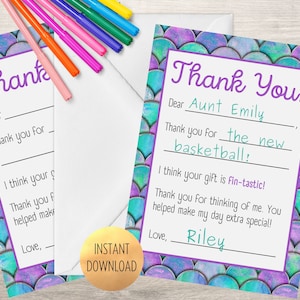 Thank
you for
I think your gi
Thank you for
helped make
Love,
Thank You
Dear Aunt Emily
Thank you for the new
basketball!
I think your gift is Fin-tastic!
Thank you for thinking of me. You
helped make my day extra special!!
Love, Riley
INSTANT
DOWNLOAD